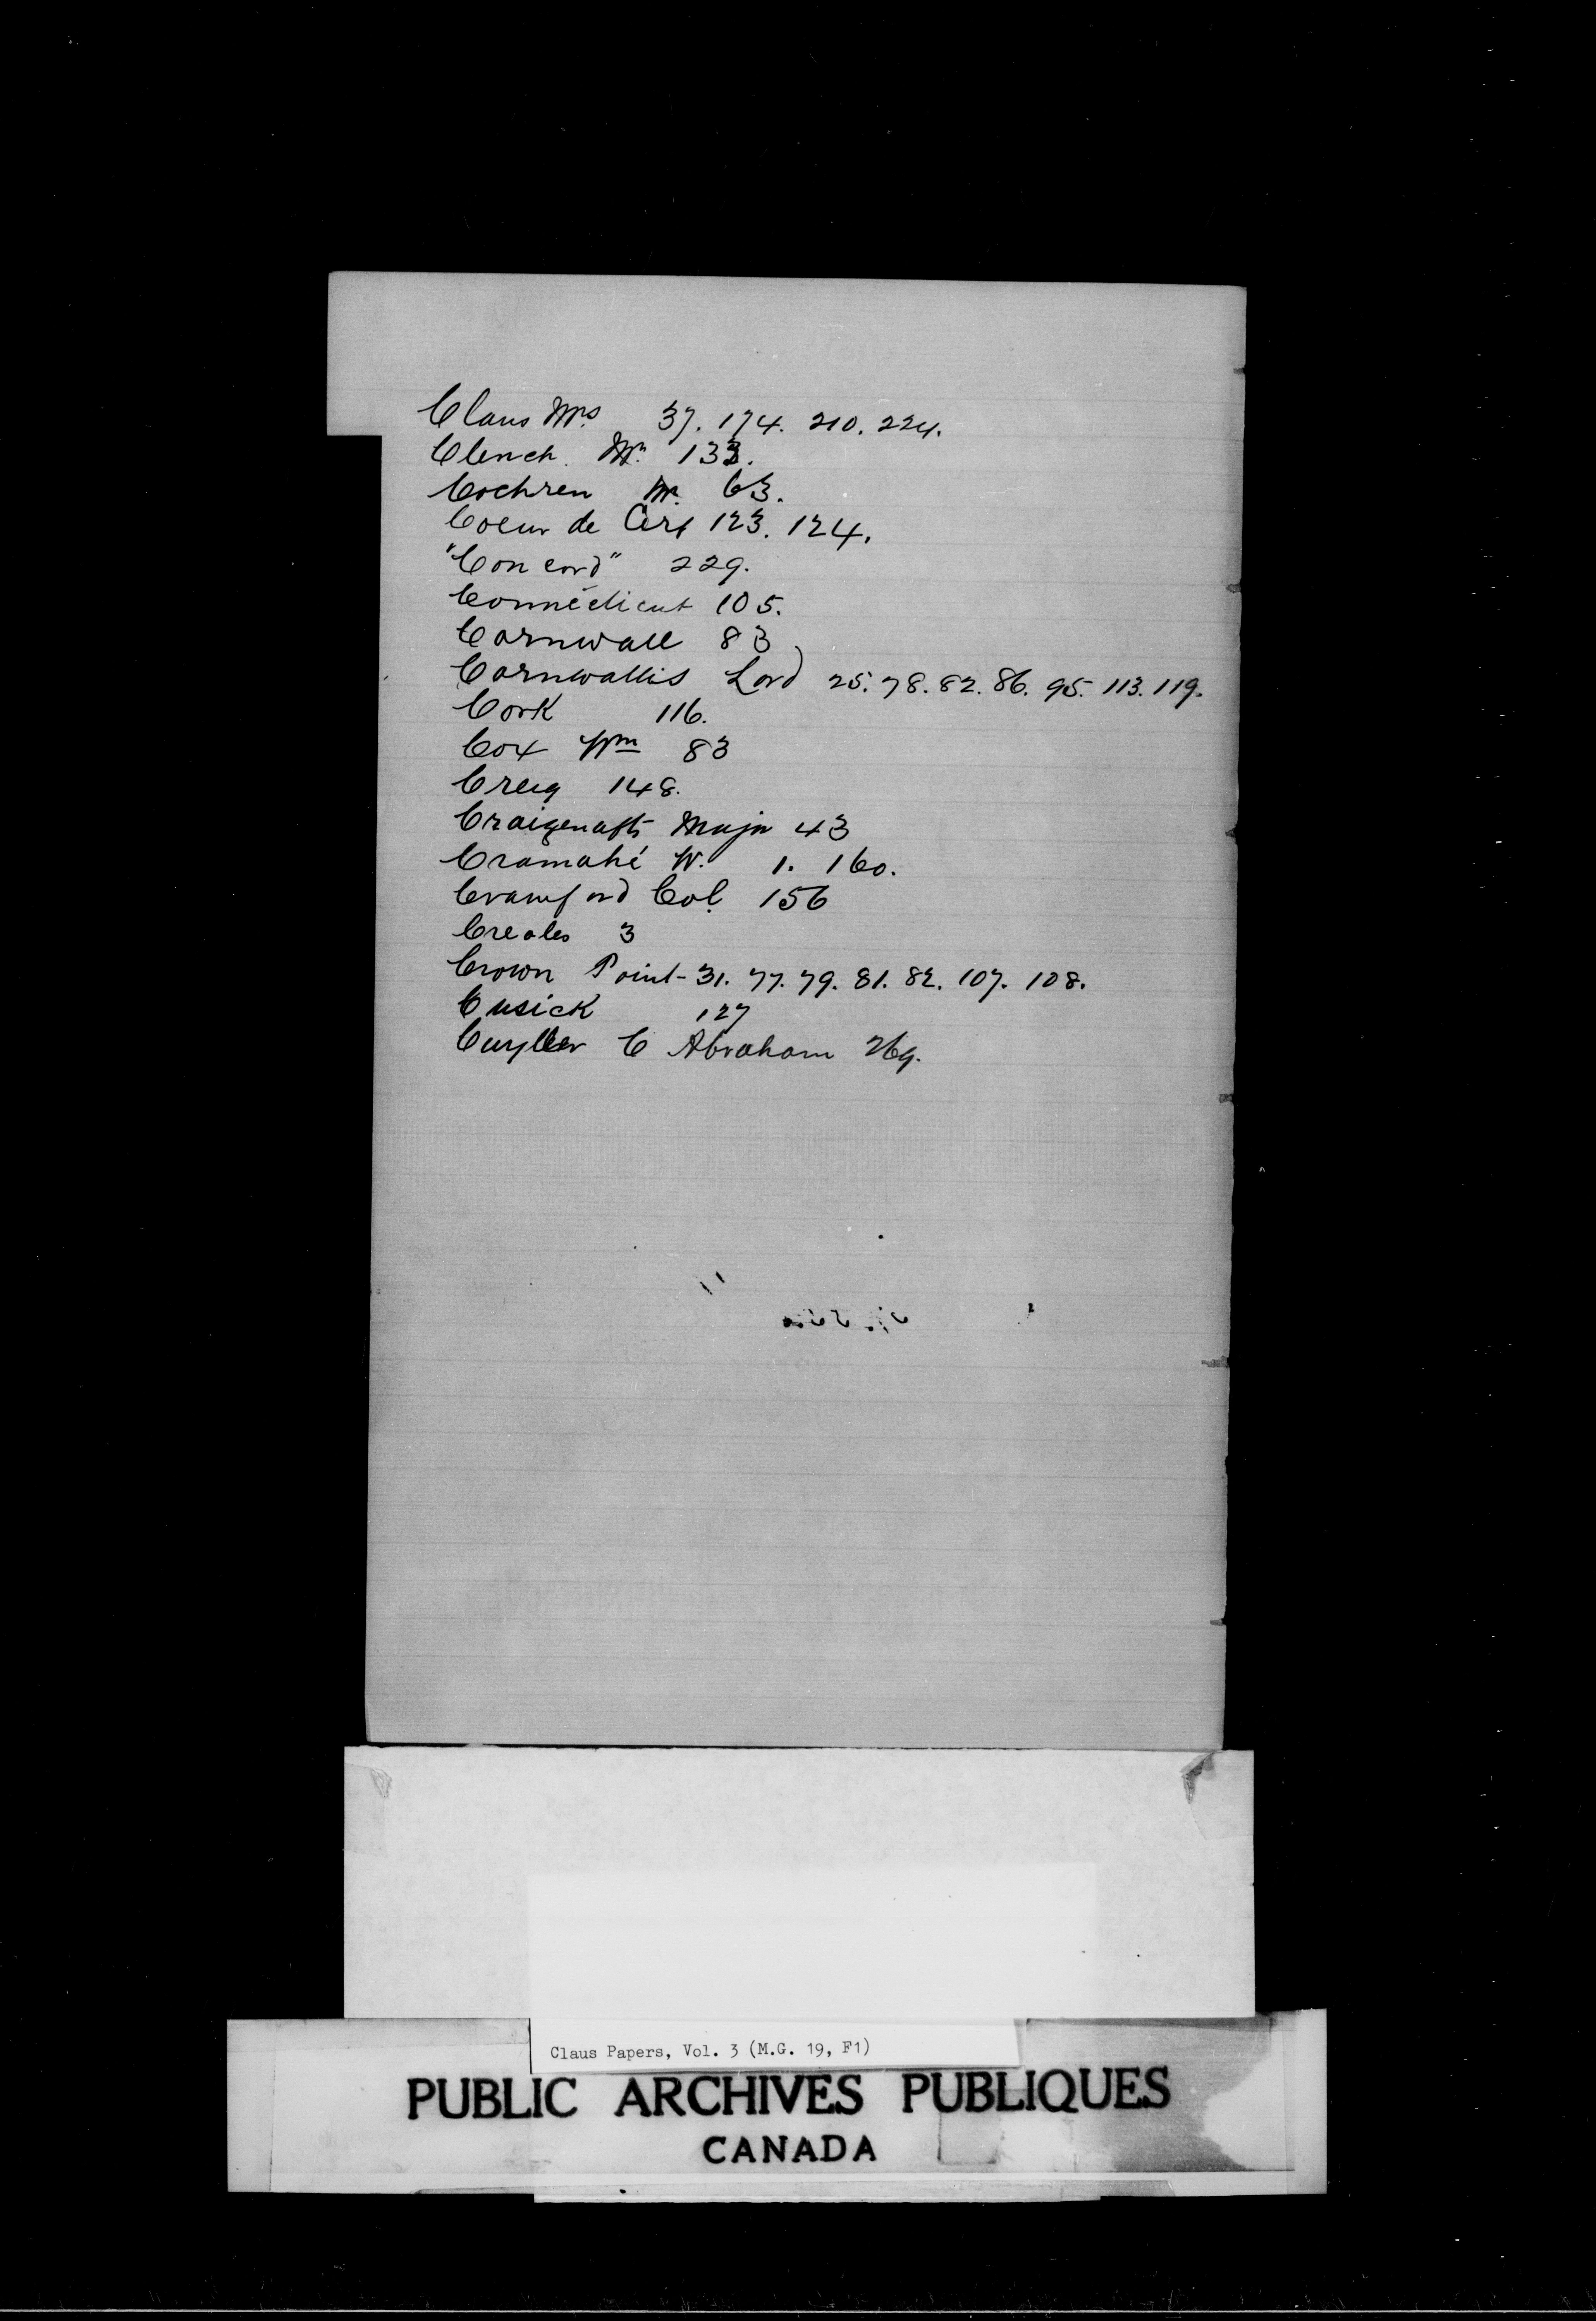 Claus Mrs 37. 174. 210. 224.
Clench. Mr. 133.
Cochren Mr. 63.
Coeur de Cerf 123. 124.
"Concord" 229.
Connecticut 105.
Cornwall 83
Cornwallis Lord 25. 78. 82. 86. 95. 113. 119.
Cork 116.
Cox Wm 83
Creig 148.
Major 43
Cramahé W. 1. 160.
Crawford Col. 156
Creoles 3
Crown Point- 31. 77. 79. 81. 82. 107. 108.
Cusick 127
Cuyller C Abraham 269.
Claus Papers, Vol. 3 (M.G. 19, F1)
PUBLIC ARCHIVES PUBLIQUES
CANADA